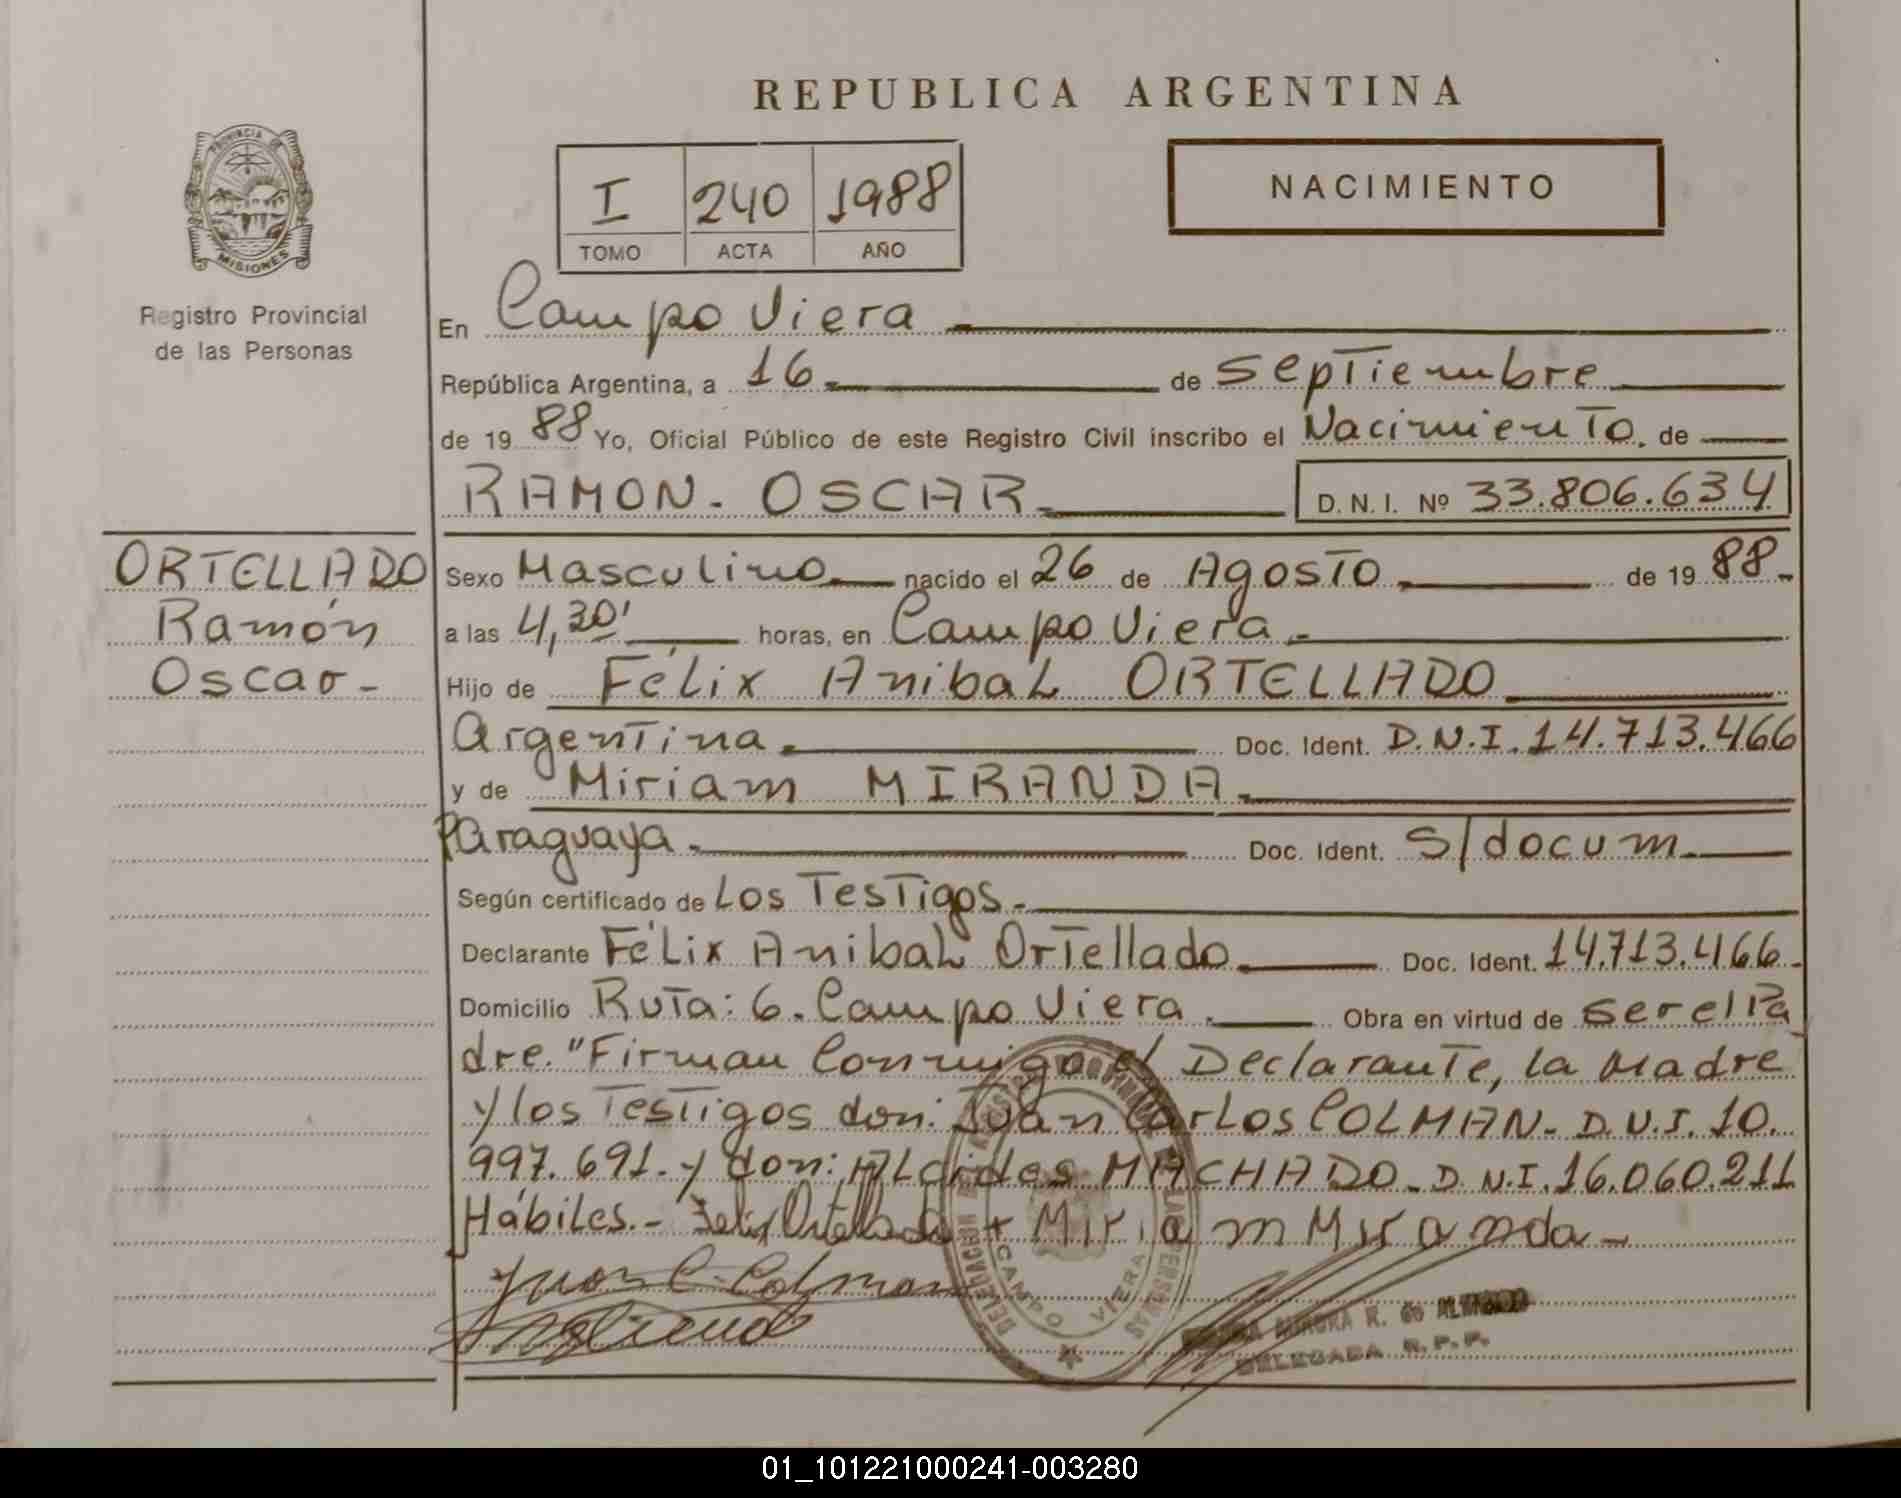 REPUBLICA ARGENTINA
PROVINCIA DE
MISIONES
Registro Provincial
de las Personas
I 240 1988
TOMO ACTA AÑO
NACIMIENTO
En Campo Viera
República Argentina, a 16 de Septiembre
de 1988 Yo, Oficial Público de este Registro Civil inscribo el Nacimiento. de
RAMON - OSCAR D. N. I. Nº 33.806.634
ORTELLADO
Ramón
Oscar -
Sexo Masculino nacido el 26 de Agosto de 1988.
a las 4,30' horas, en Campo Viera.
Hijo de Félix Anibal ORTELLADO
Argentina. Doc. Ident. D.N.I. 14.713.466
y de Miriam MIRANDA.
Paraguaya. Doc. Ident. S/docum.
Según certificado de Los Testigos.
Declarante Félix Anibal Ortellado Doc. Ident. 14.713.466.
Domicilio Ruta: 6. Campo Viera. Obra en virtud de ser el Pa
dre. "Firman Conmigo el Declarante, la Madre
y los Testigos don: Juan Carlos COLMAN - D.N.I. 10.
997.691. y don: Alcides MACHADO - D.N.I. 16.060.211
Hábiles. - Felix Ortellado + Miriam Miranda -
Juan C. Colman
DELEGACION CAMPO VIERA
AURORA R. de
DELEGADA R.P.P.
01_101221000241-003280